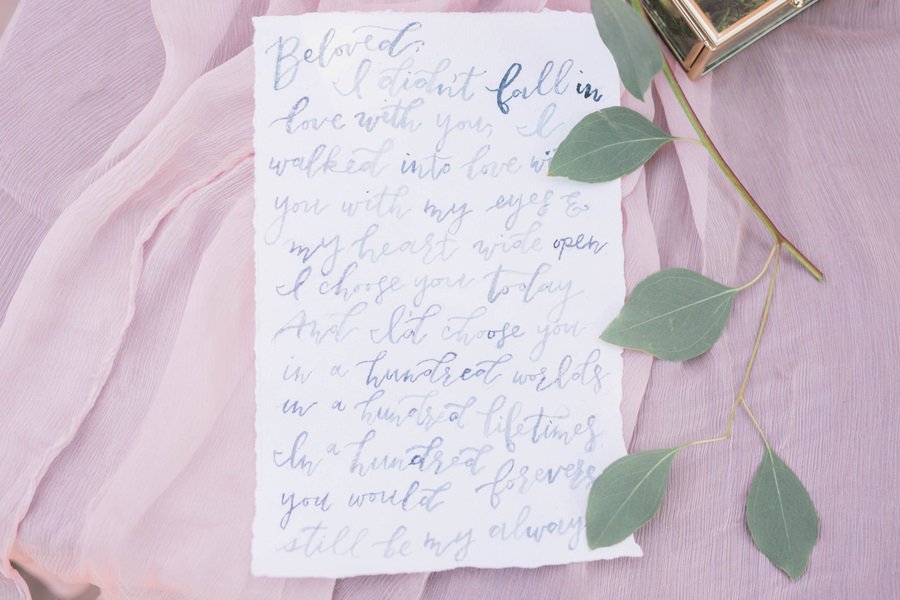 Beloved,
I didn't fall in
love with you, I
walked into love wi
you with my eyes &
my heart wide open
I choose you today
And I'd choose you
in a hundred worlds
in a hundred lifetimes
In a hundred forevers
you would
still be my always